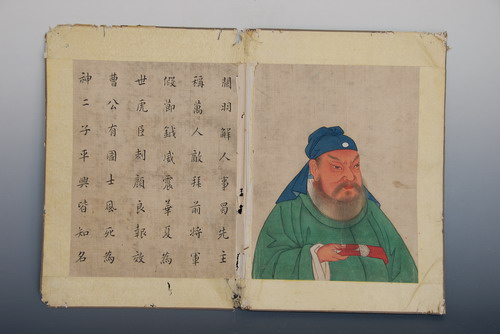 關羽解人事蜀先主
稱萬人敵拜前將軍
假節鉞威震華夏為
世虎臣刺顏良報效
曹公有國士風死為
神二子平興皆知名